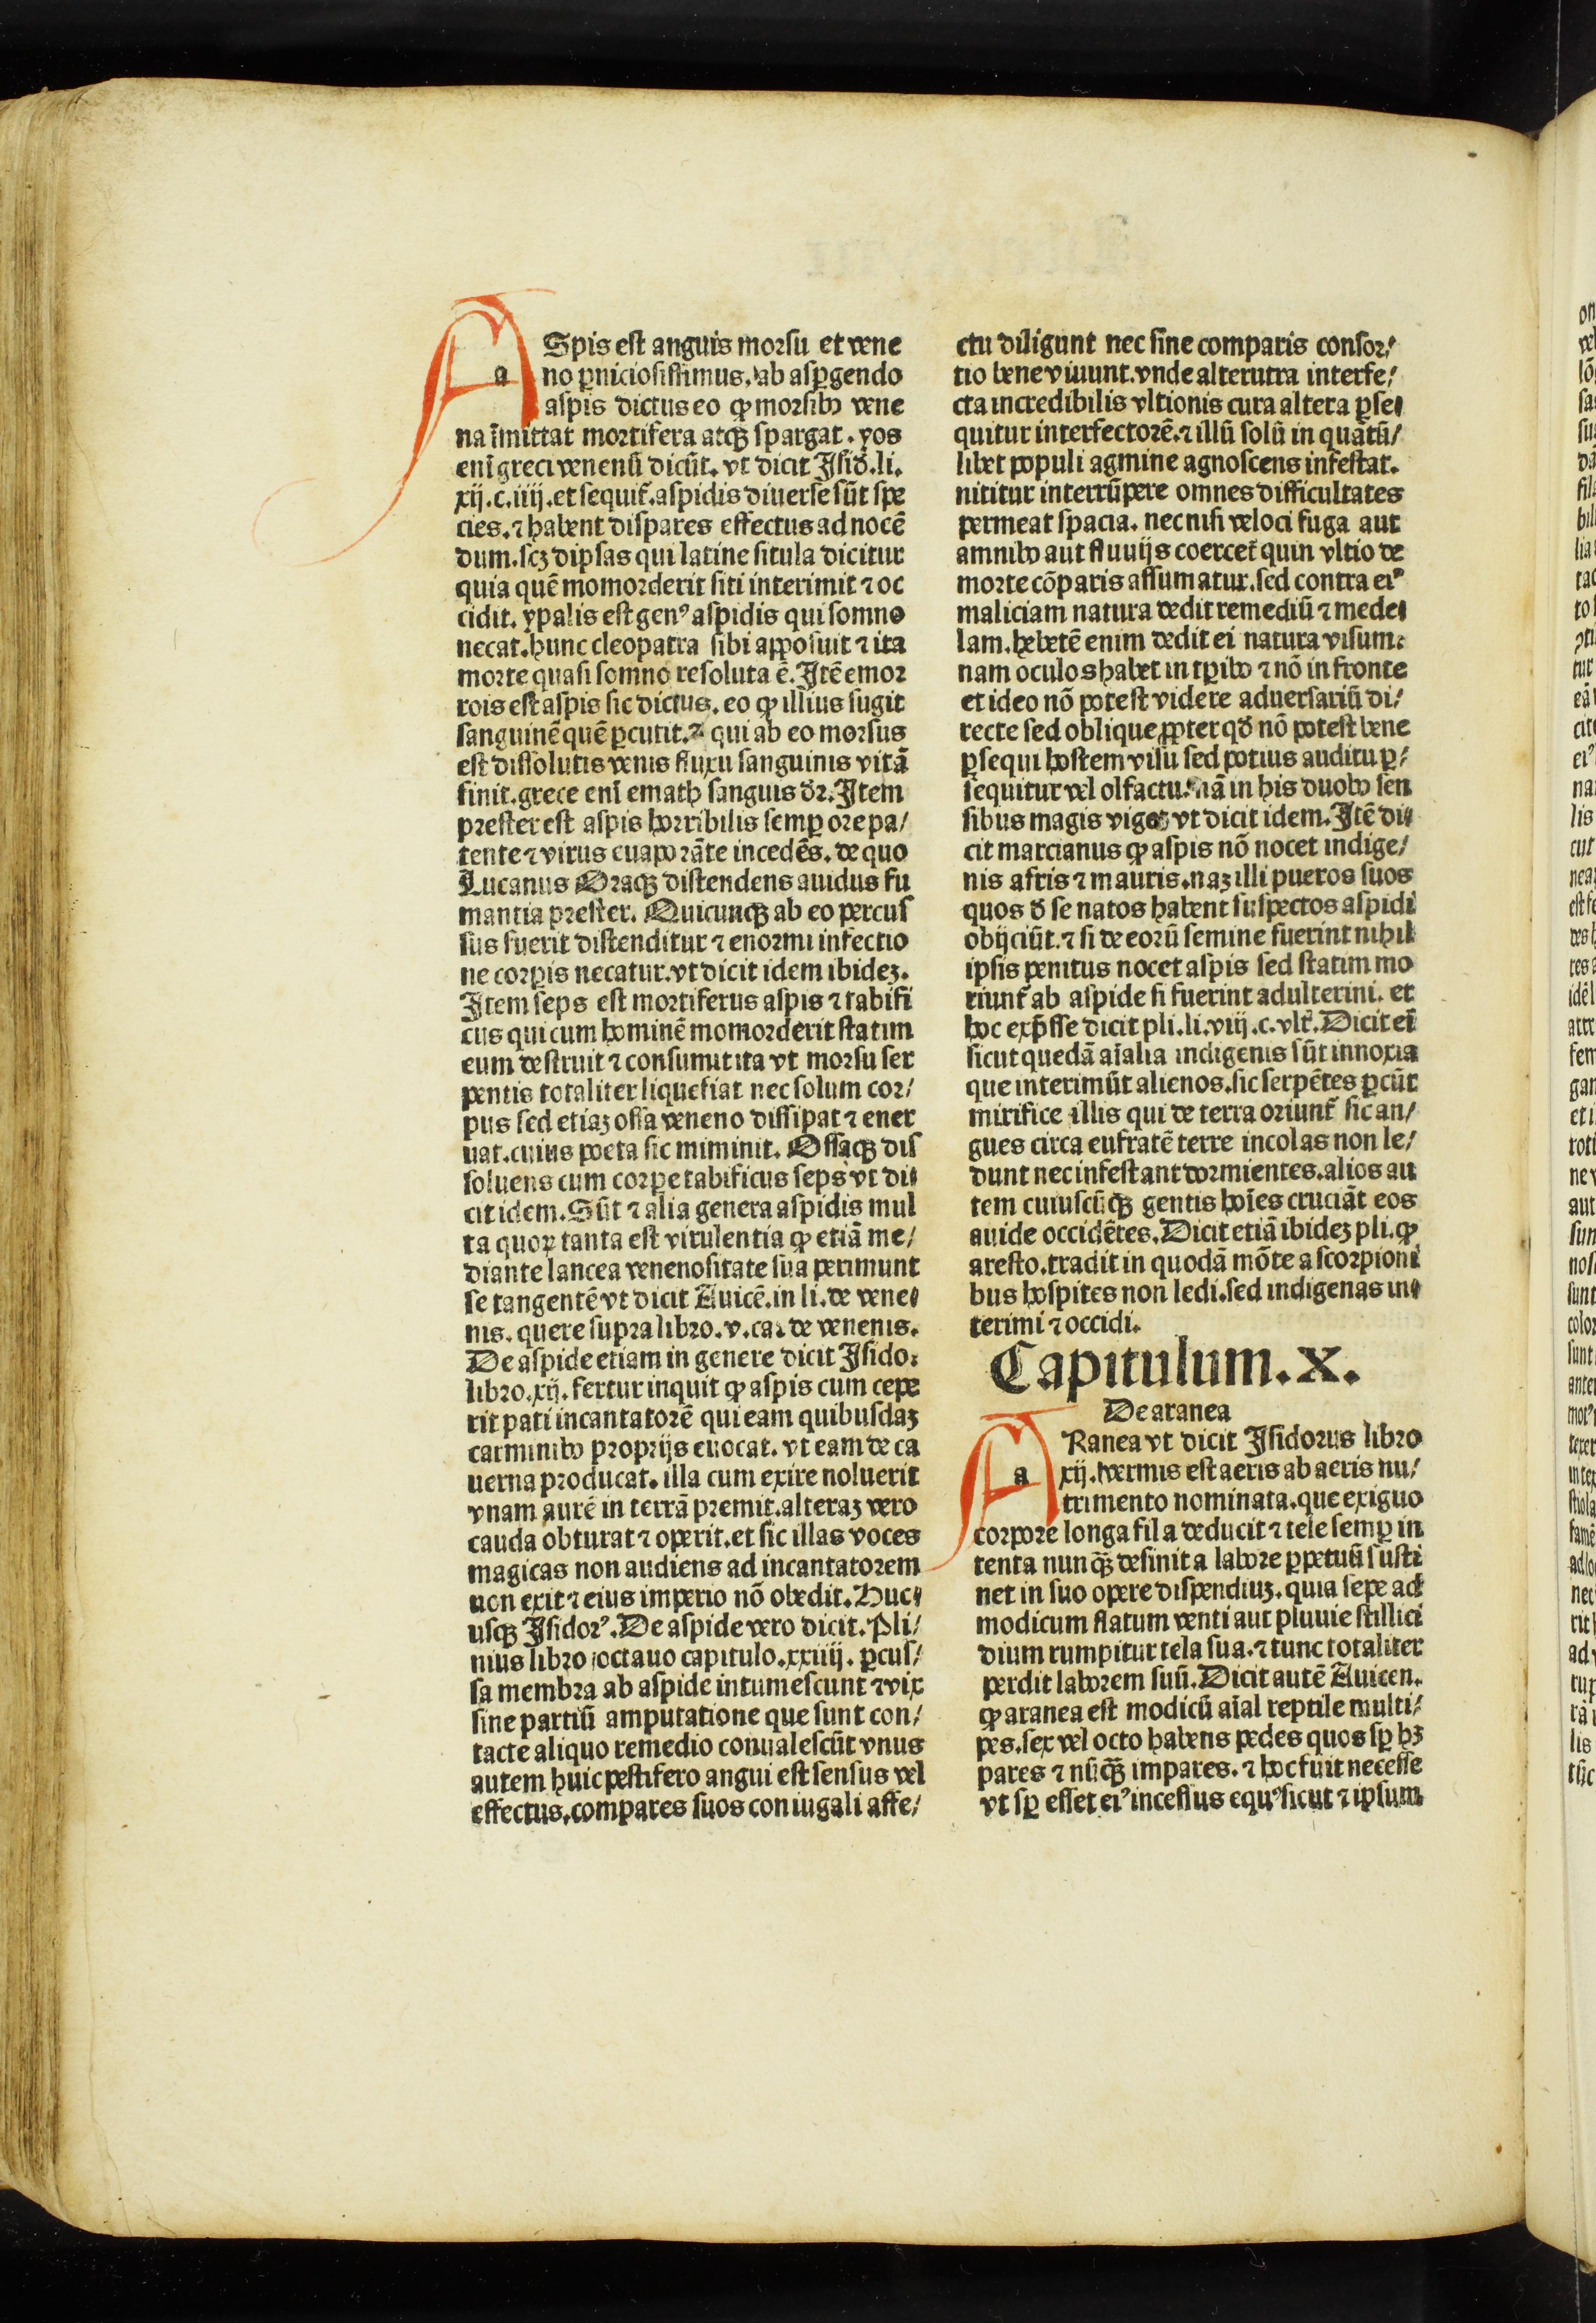 aSpis est anguis morsu et vene
no ꝑniciosissimus. ab asꝑgendo
aspis dictus eo ꝙ morsibꝰ vene
na īmittat mortifera atqꝫ spargat. yos
enī greci venenū dicūt. vt dicit Isid̄. li.
xij. c. iiij. et sequit᷑. aspidis diuerse sūt spe
cies. ⁊ habent dispares effectus ad nocē
dum. scꝫ dipsas qui latine situla dicitur
quia quē momorderit siti interimit ⁊ oc
cidit. ypalis est genꝰ aspidis qui somno
necat. hunc cleopatra sibi apposuit ⁊ ita
morte quasi somno resoluta ē. Itē emor
rois est aspis sic dictus. eo ꝙ illius sugit
sanguinē quē ꝑcutit. ⁊ qui ab eo morsus
est dissolutis venis fluxu sanguinis vitā
finit. grece enī emath sanguis dr̄. Item
prester est aspis horribilis semꝑ ore pa/
tente ⁊ virus euaporāte incedēs. de quo
Lucanus Oraqꝫ distendens auidus fu
mantia prester. Quicunqꝫ ab eo percus
sus fuerit distenditur ⁊ enormi infectio
ne corꝑis necatur. vt dicit idem ibideꝫ.
Item seps est mortiferus aspis ⁊ tabifi
cus qui cum hominē momorderit statim
eum destruit ⁊ consumit ita vt morsu ser
pentis totaliter liquefiat nec solum cor/
pus sed etiaꝫ ossa veneno dissipat ⁊ ener
uat. cuius poeta sic miminit. Ossaqꝫ dis
soluens cum corpe tabificus seps vt di/
cit idem. Sūt ⁊ alia genera aspidis mul
ta quoꝝ tanta est virulentia ꝙ etiā me/
diante lancea venenositate sua perimunt
se tangentē vt dicit Auicē. in li. de vene/
nis. quere supra libro. v. ca. de venenis.
De aspide etiam in genere dicit Isido.
libro. xij. fertur inquit ꝙ aspis cum cepe
rit pati incantatorē qui eam quibusdaꝫ
carminibꝰ proprijs euocat. vt eam de ca
uerna producat. illa cum exire noluerit
vnam aurē in terrā premit. alteraꝫ vero
cauda obturat ⁊ operit. et sic illas voces
magicas non audiens ad incantatorem
non exit ⁊ eius imperio nō obedit. Huc/
usqꝫ Isidorꝰ. De aspide vero dicit. Pli/
nius libro octauo capitulo. xxiiij. ꝑcus/
sa membra ab aspide intumescunt ⁊ vix
sine partiū amputatione que sunt con/
tacte aliquo remedio conualescūt vnus
autem huic pestifero angui est sensus vel
effectus. compares suos coniugali affe/
ctu diligunt nec sine comparis consor/
tio bene viuunt. vnde alterutra interfe/
cta incredibilis vltionis cura altera ꝑse/
quitur interfectorē. ⁊ illū solū in quātū/
libet populi agmine agnoscens infestat.
nititur interrūpere omnes difficultates
permeat spacia. nec nisi veloci fuga aut
amnibꝰ aut fluuijs coercet᷑ quin vltio de
morte cōparis assumatur. sed contra eiꝰ
maliciam natura dedit remediū ⁊ mede/
lam. hebetē enim dedit ei natura visum.
nam oculos habet in tꝑibꝰ ⁊ nō in fronte
et ideo nō potest videre aduersariū di/
recte sed oblique ꝓpter qd̄ nō potest bene
ꝑsequi hostem visu sed potius auditu ꝑ/
sequitur vel olfactu. nā in his duobꝰ sen
sibus magis viget vt dicit idem. Itē di/
cit marcianus ꝙ aspis nō nocet indige/
nis afris ⁊ mauris. naꝫ illi pueros suos
quos d̄ se natos habent suspectos aspidi
obijciūt. ⁊ si de eorū semine fuerint nihil
ipsis penitus nocet aspis sed statim mo
riunt᷑ ab aspide si fuerint adulterini. et
hoc exp̄sse dicit pli. li. viij. c. vlt᷑. Dicit eī
sicut quedā aīalia indigenis sūt innoxia
que interimūt alienos. sic serpētes ꝑcūt
mirifice illis qui de terra oriunt᷑ sic an/
gues circa eufratē terre incolas non le/
dunt nec infestant dormientes. alios au
tem cuiuscūqꝫ gentis hoīes cruciāt eos
auide occidētes. Dicit etiā ibideꝫ pli. ꝙ
aresto. tradit in quodā mōte a scorpioni
bus hospites non ledi. sed indigenas in/
terimi ⁊ occidi.
Capitulum. X.
De aranea
aRanea vt dicit Isidorus libro
xij. vermis est aeris ab aeris nu/
trimento nominata. que exiguo
corpore longa fila deducit ⁊ tele semꝑ in
tenta nunqꝫ̄ desinit a labore ꝑpetuū susti
net in suo opere dispendiuꝫ. quia sepe ad
modicum flatum venti aut pluuie stillici
dium rumpitur tela sua. ⁊ tunc totaliter
perdit laborem suū. Dicit autē Auicen.
ꝙ aranea est modicū aīal reptile multi/
pes. sex vel octo habens pedes quos sꝑ hꝫ
pares ⁊ nūqꝫ̄ impares. ⁊ hoc fuit necesse
vt sꝑ esset eiꝰ incessus equꝰ sicut ⁊ ipsum